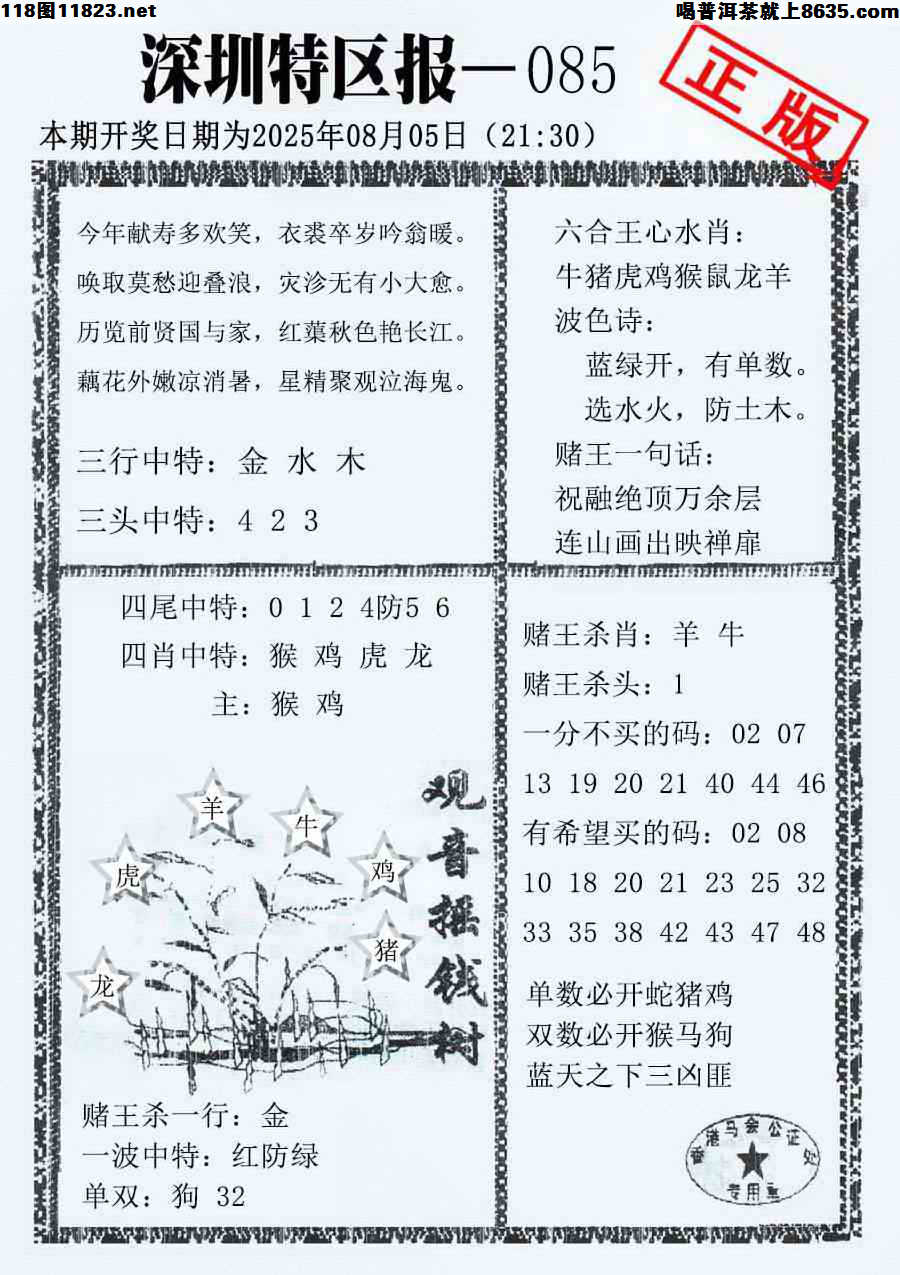 118图11823.net
喝普洱茶就上8635.com
深圳特区报—085
正版
本期开奖日期为2025年08月05日（21:30）
今年献寿多欢笑，衣裘卒岁吟翁暖。
唤取莫愁迎叠浪，灾沴无有小大愈。
历览前贤国与家，红蕖秋色艳长江。
藕花外嫩凉消暑，星精聚观泣海鬼。
三行中特：金 水 木
三头中特：4 2 3
六合王心水肖：
牛猪虎鸡猴鼠龙羊
波色诗：
蓝绿开，有单数。
选水火，防土木。
赌王一句话：
祝融绝顶万余层
连山画出映禅扉
四尾中特：0 1 2 4防5 6
四肖中特：猴 鸡 虎 龙
主：猴 鸡
观音摇钱树
羊
牛
虎
鸡
猪
龙
赌王杀一行：金
一波中特：红防绿
单双：狗 32
赌王杀肖：羊 牛
赌王杀头：1
一分不买的码：02 07
13 19 20 21 40 44 46
有希望买的码：02 08
10 18 20 21 23 25 32
33 35 38 42 43 47 48
单数必开蛇猪鸡
双数必开猴马狗
蓝天之下三凶匪
香港马会公证处
专用章
118图11823.net
喝普洱茶就上8635.com